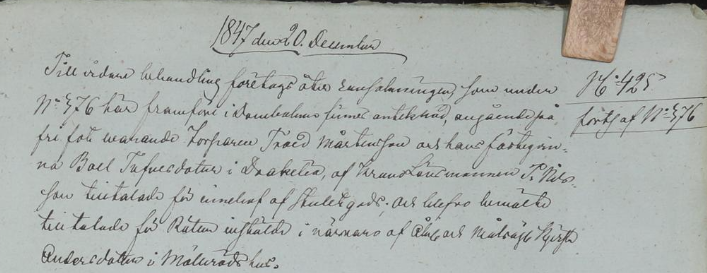 1847 den 20. December
Till vidare behandling företogs åter ransakningen, som under
No 376 här framföre i Domboken finnes antecknad, angående på
fri fot warande Torparen Troed Mårtensson och hans fästeqvin-
na Boel
dotter i
, af KronoLänsmannen P. Nils-
son tilltalade för innehaf af stulet gods, och blefvo bemälte
tilltalade för Rätten inställde i närvaro af
och
Andersdotter i
No 425
forts. af No 376